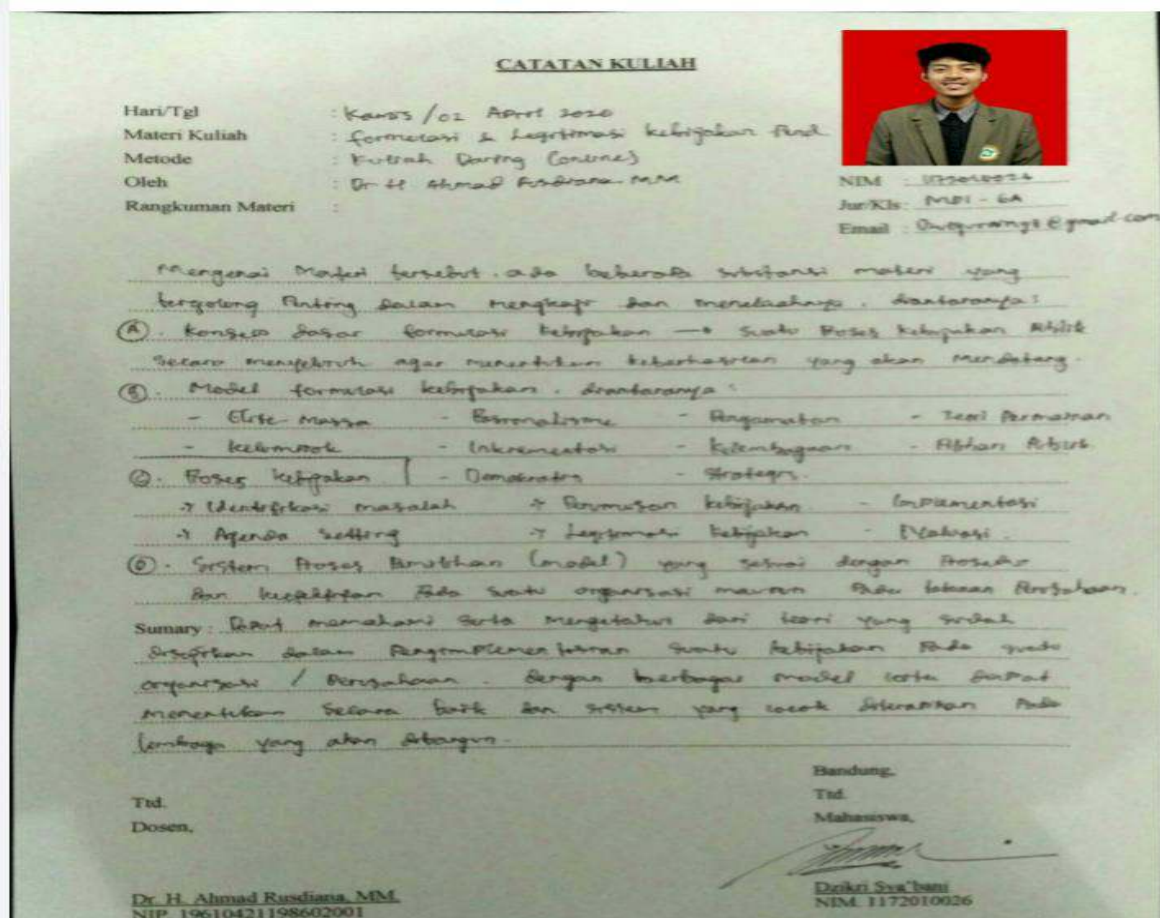 CATATAN KULIAH
Hari/Tgl : Kamis /02 April 2020
Materi Kuliah : formulasi & Legitimasi kebijakan Pend.
Metode : Kuliah Daring (online)
Oleh : Dr H Ahmad Rusdiana MM
Rangkuman Materi :
NIM : 1172010026
Jur/Kls : MPI - 6A
Email : @gmail.com
Mengenai Materi tersebut. ada beberapa substansi materi yang
tergolong Penting dalam mengkaji dan menelaahnya. diantaranya:
(A). Konsep dasar formulasi kebijakan → suatu Proses kebijakan Publik
secara menyeluruh agar menentukan keberhasilan yang akan mendatang.
(B). Model formulasi kebijakan. diantaranya:
- Elite-massa - - Pengamatan - Teori Permainan
- kelompok - Inkrementasi - Kelembagaan - Pilihan Publik
(C). Proses kebijakan - Demokratis - Strategis.
→ Identifikasi masalah → Perumusan kebijakan - Implementasi
→ Agenda Setting → Legitimasi kebijakan - Evaluasi.
(D). Sistem Proses (model) yang sesuai dengan Prosedur
dan Pada suatu organisasi maupun Pada tatanan Perusahaan.
Sumary : Dapat memahami serta mengetahui dari teori yang sudah
disajikan dalam Pengimplementasian suatu kebijakan Pada suatu
organisasi / Perusahaan. dengan berbagai model serta dapat
menentukan secara baik dan sistem yang cocok diterapkan Pada
lembaga yang akan dibangun.
Bandung,
Ttd. Ttd.
Dosen, Mahasiswa,
Dr. H. Ahmad Rusdiana, MM. Dzikri Sya'bani
NIP. 19610421198602001 NIM. 1172010026